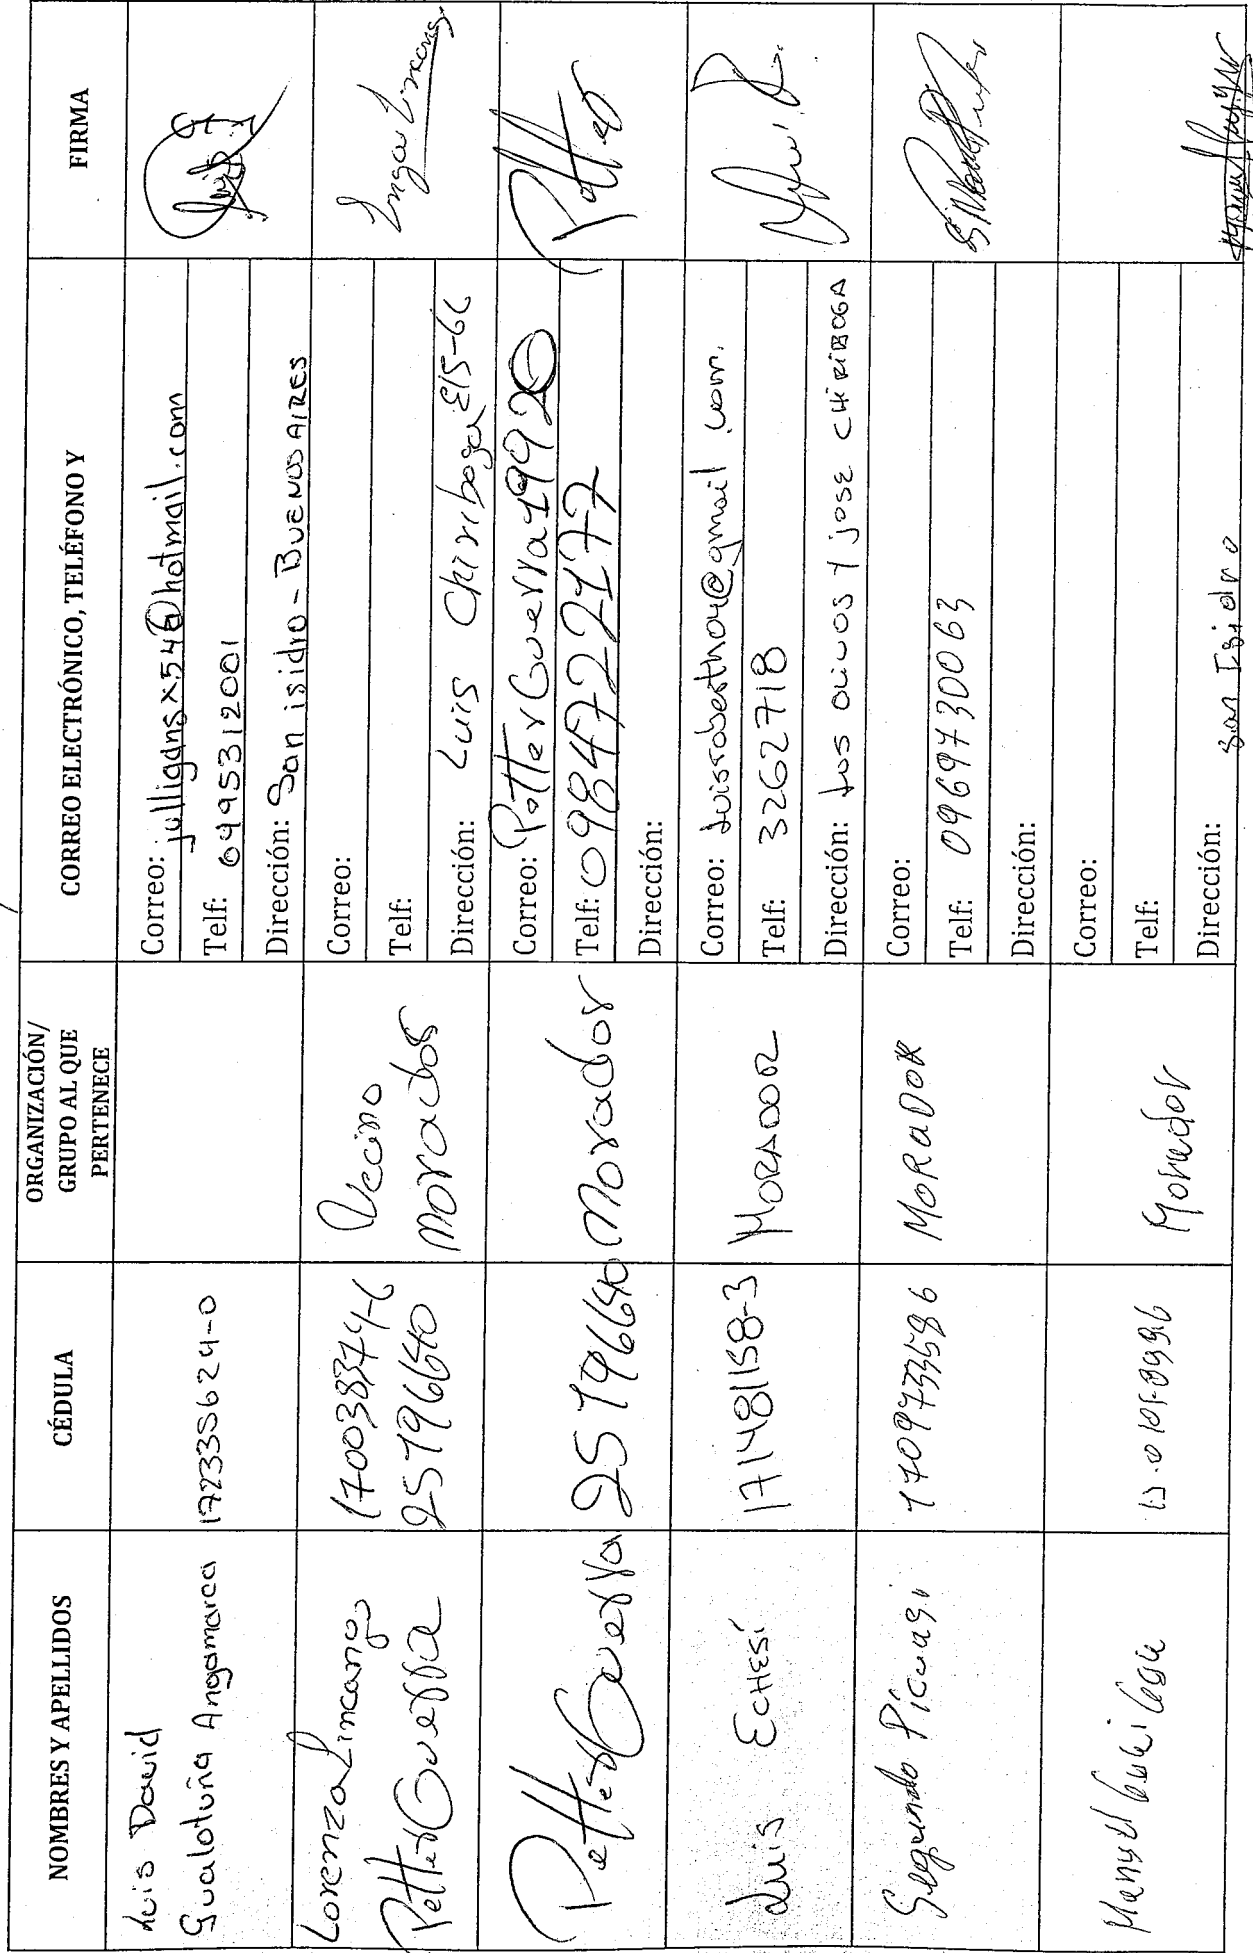 NOMBRES Y APELLIDOS
CÉDULA
ORGANIZACIÓN/
GRUPO AL QUE
PERTENECE
CORREO ELECTRÓNICO, TELÉFONO Y
FIRMA
Luis David
Gualotuña Angamarca
172335624-0
Correo: julligansx54@hotmail.com
Telf: 0995312001
Dirección: San isidro - BUENOS AIRES
Lorenzo Lincango
Petter Guerra
170038374-6
25796640
Vecino
morador
Correo:
Telf:
Dirección: Luis Chiriboga E15-66
Petter Guerra
25796640
Morador
Correo: Potter Guerra 1992
Telf: 0984722177
Dirección:
Potter
Luis ECHESÍ
171481158-3
MORADOR
Correo: Luisroberthou@gmail.com.
Telf: 3262718
Dirección: Los OLIVOS Y JOSE CHIRIBOGA
Segundo Picuasi
1709733586
MORADOR
Correo:
Telf: 0969730063
Dirección:
Manuel
Morador
Correo:
Telf:
Dirección: San Isidro